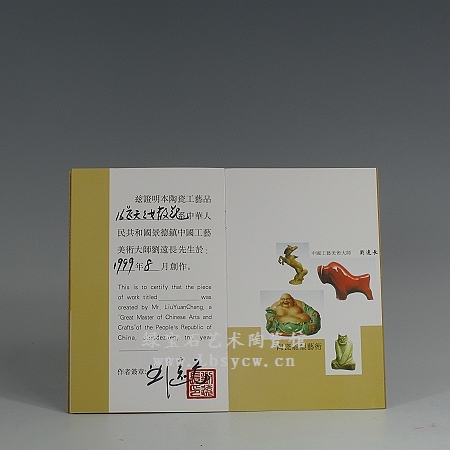 茲證明本陶瓷工藝品
天女散花 系中華人
民共和國景德鎮中國工藝
美術大師劉遠長先生於:
1999年8月創作。
This is to certify that the piece
of work titled was
created by Mr. LiuYuanChang, a
"Great Master of Chinese Arts and
Crafts"of the People's Republic of
China, Jingdezhen, in year
作者簽章:
中國工藝美術大師 劉遠長
陶瓷雕塑藝術
绿宝石艺术陶瓷馆
www.lbsycw.cn